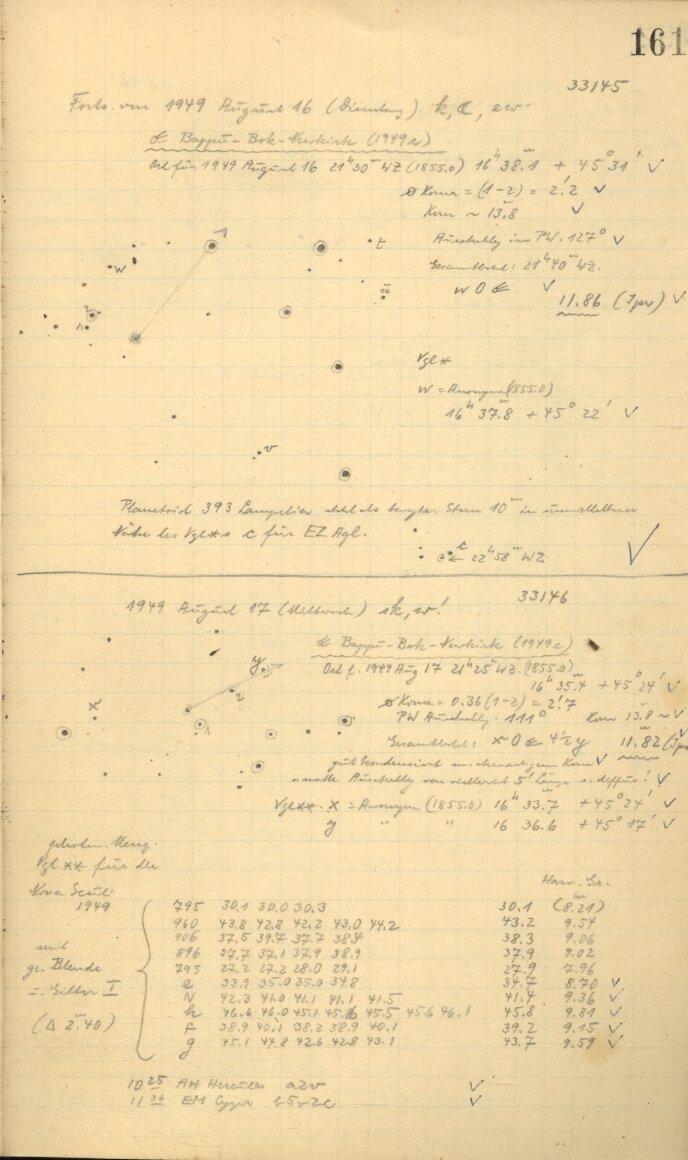 161
33145
Forts. von 1949 August 16 (Dienstag) k, ☾,
Bappu-Bok-Newkirk (1949c)
Ort für 1949 August 16 21ʰ30ᵐ WZ (1855.0) 16ʰ 38.1ᵐ + 45° 31' ✓
⌀ Koma = (1-2) = 2.'2 ✓
Kern ~ 13.8ᵐ ✓
1
t
w
Ausstrahlg in PW. 127° ✓
Gesamthell: 21ʰ40ᵐ WZ.
u
w 0 ☄ ✓
11.86 (Ipv) ✓
2
1
Vgl*
w = Anonyma (1855.0)
16ʰ 37.8ᵐ + 45° 22' ✓
v
Planetoid 393 Lampetia steht als Stern 10ᵐ in unmittelbarer
Nähe des Vgl*s c für EZ Aql.
c
22ʰ58ᵐ WZ ✓
33146
1949 August 17 (Mittwoch) sk, w!
Bappu-Bok-Newkirk (1949c)
Ort f. 1949 Aug 17 21ʰ25ᵐ WZ. (1855.0)
y
16ʰ 35.4ᵐ + 45° 24' ✓
2
x
⌀ Koma = 0.36 (1-2) = 2.'7
1
PW Ausstrahlg. 111° Kern 13.8 ~ ✓
Gesamthell: x 0 ☄ 4½ y 11.82 (Ipv
gut kondensiert m. Kern ✓
matte Ausstrahlg von vielleicht 5' Länge s. diffus! ✓
Vgl** x = Anonyma (1855.0) 16ʰ 33.7ᵐ + 45° 24' ✓
y " " 16 36.6 + 45° 17' ✓
photom. Meng.
Vgl ** für die
Nova Scuti
1949
Harv. Gr.
795 30.1 30.0 30.3 30.1 (8.21)
960 43.8 42.8 42.2 43.0 44.2 43.2 9.54
906 37.5 39.7 37.7 38.4 38.3 9.06
mit
896 37.7 37.1 37.9 38.9 37.9 9.02
gr. Blende
795 27.2 27.2 28.0 29.1 27.9 7.96
e 33.9 35.0 35.0 34.8 34.7 8.70 ✓
u. Gitter I
N 42.3 41.0 41.1 41.1 41.5 41.4 9.36 ✓
h 46.6 46.0 45.1 45.6 45.5 45.6 46.1 45.8 9.81 ✓
(Δ 2.40ᵐ)
f 38.9 40.1 38.2 38.9 40.1 39.2 9.15 ✓
g 45.1 44.8 42.6 42.8 43.1 43.7 9.59 ✓
10 25 AH Herculis a2v ✓
11 EM Cygni b5v2c ✓